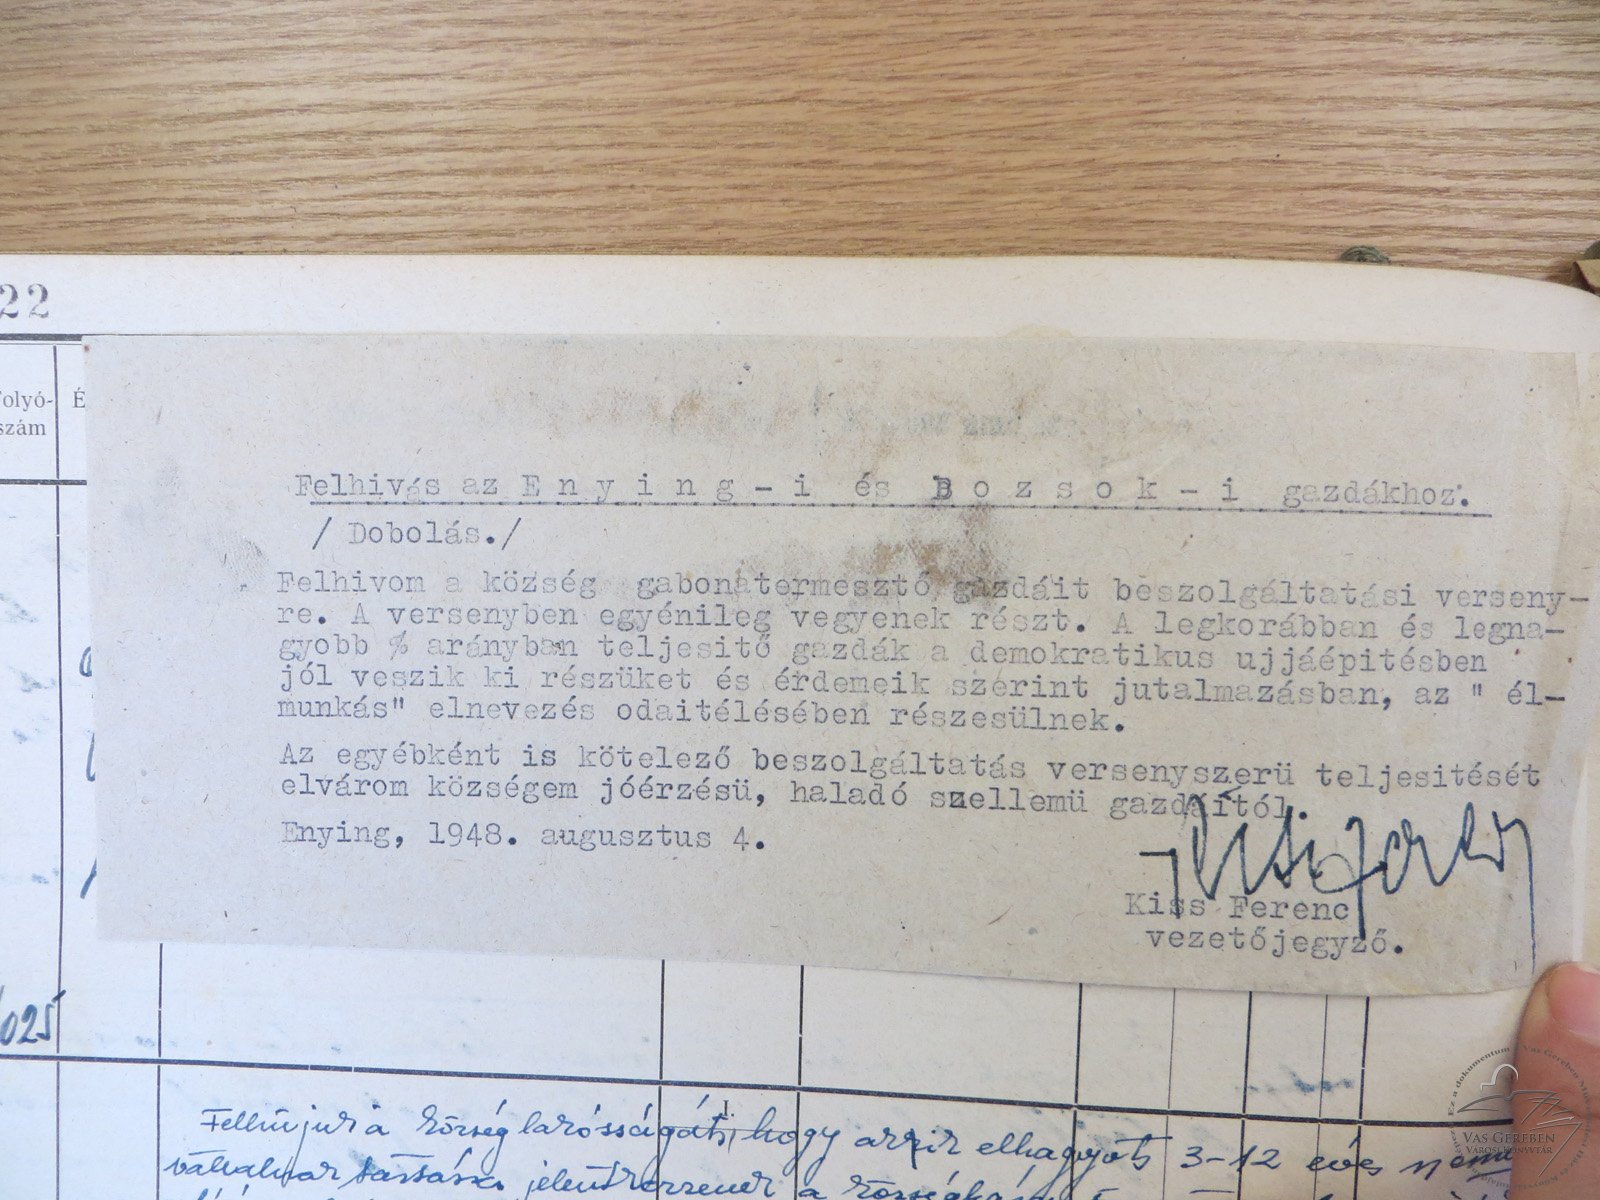 22
olyó-
szám
É
Felhivás az E n y i n g - i és B o z s o k - i gazdákhoz.
/ Dobolás./
Felhivom a község gabonatermesztő gazdáit beszolgáltatási verseny-
re. A versenyben egyénileg vegyenek részt. A legkorábban és legna-
gyobb % arányban teljesitő gazdák a demokratikus ujjáépitésben
jól veszik ki részüket és érdemeik szerint jutalmazásban, az " él-
munkás" elnevezés odaitélésében részesülnek.
Az egyébként is kötelező beszolgáltatás versenyszerü teljesitését
elvárom községem jóérzésü, haladó szellemü gazdáitól.
Enying, 1948. augusztus 4.
Kiss Ferenc
vezetőjegyző.
025
I.
Felhívjuk a község lakósságát, hogy azzir elhagyott 3-12 éves
a
VAS GEREBEN
VÁROSI KÖNYVTÁR